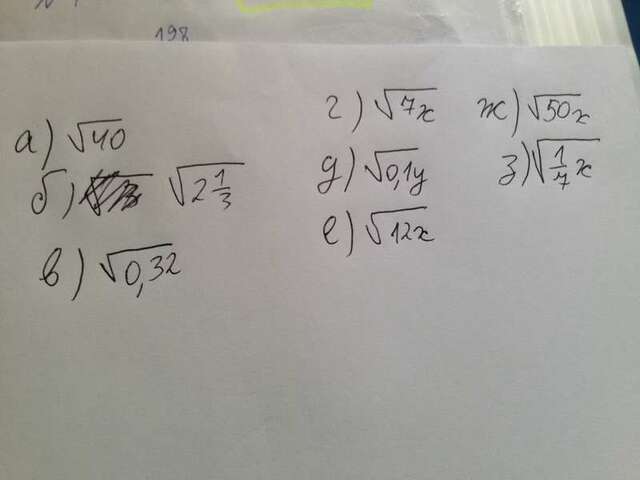 198
а) √40
б) √2 1/3
в) √0,32
г) √7x
д) √0,1y
е) √12x
ж) √50x
з) √1/7 x